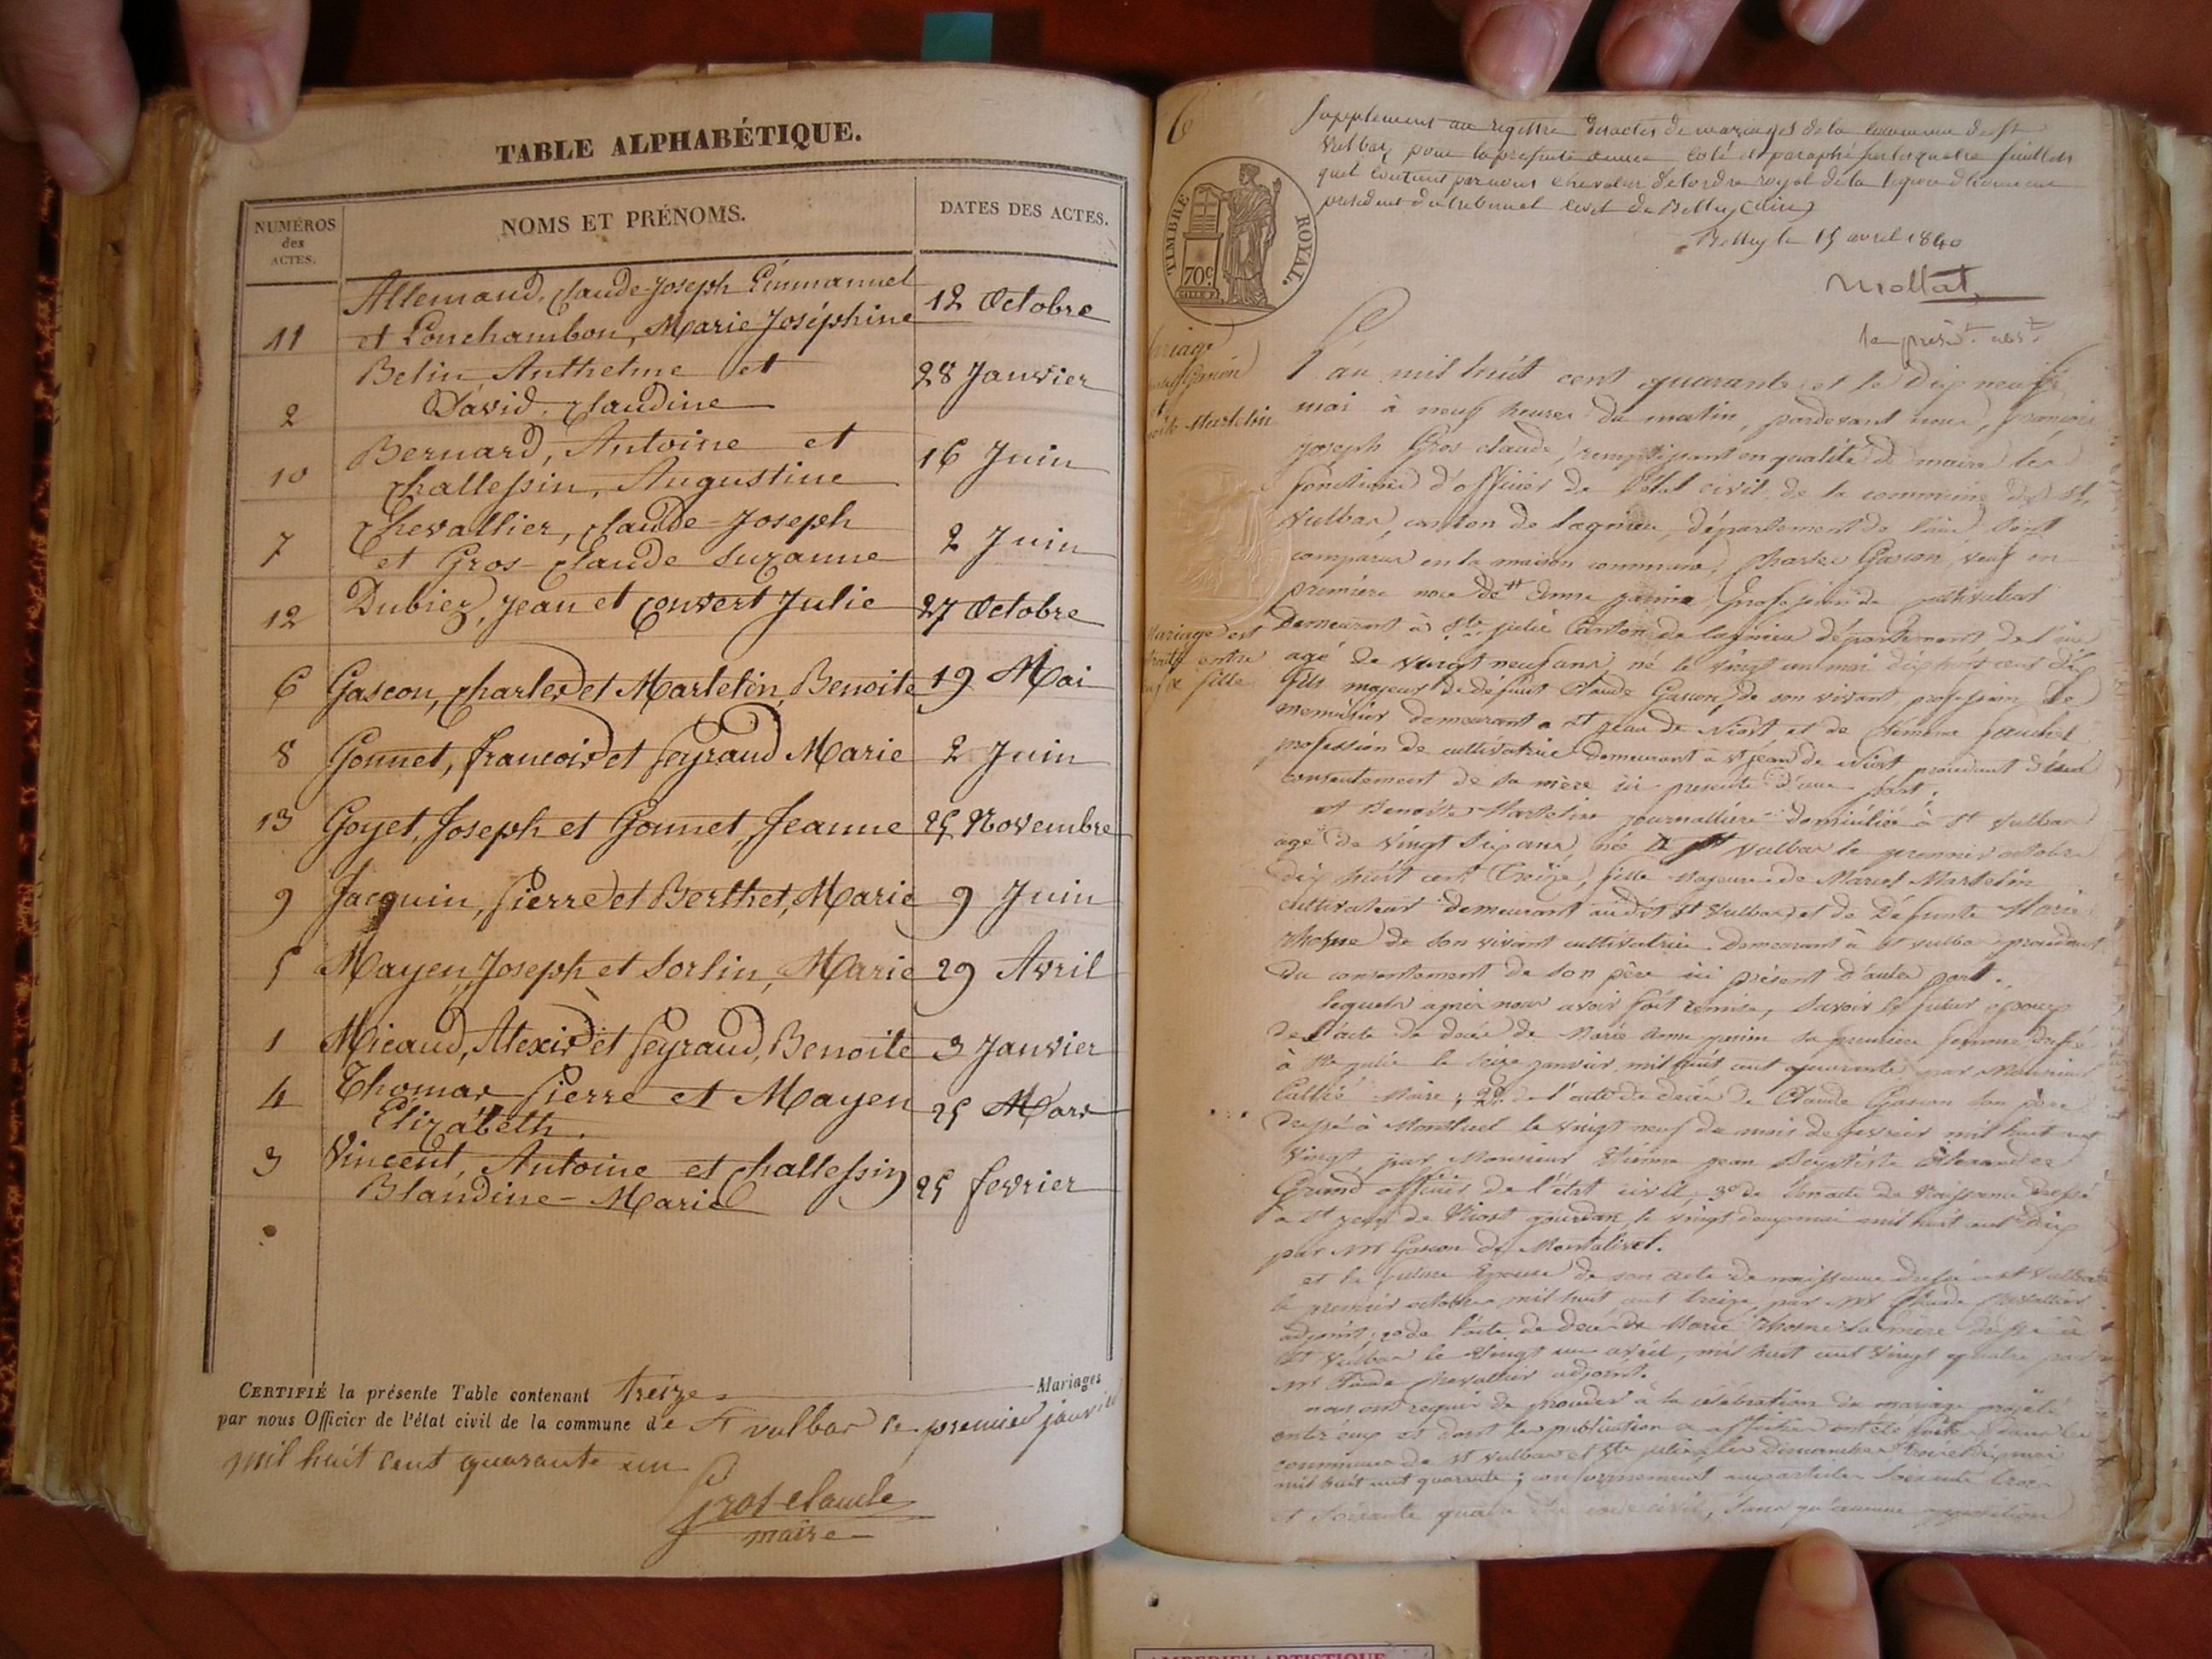 TABLE ALPHABÉTIQUE.
NUMÉROS des ACTES.
NOMS ET PRÉNOMS.
DATES DES ACTES.
Allemand, Claude-Joseph Emmanuel
11 et Ponchambon, Marie Joséphine 12 Octobre
Belin, Anthelme et
2 David, Claudine 28 Janvier
Bernard, Antoine et
10 Challessin, Augustine 16 Juin
Chevallier, Claude-Joseph
7 et Gros-Claude Suzanne 2 Juin
12 Dubiez, Jean et Convert Julie 27 Octobre
6 Gascon, Charles et Martelin, Benoite 19 Mai
8 Gonnet, francois et Peyraud Marie 2 Juin
13 Goyet, Joseph et Gonnet, Jeanne 25 Novembre
9 Jacquin, Pierre et Berthet, Marie 9 Juin
5 Mayen, Joseph et Sorlin, Marie 29 Avril
1 Micaud, Alexis et Peyraud, Benoite 3 Janvier
4 Thomas Pierre et Mayen
Elizabeth. 25 Mars
3 Vincent, Antoine et Challessin
Blandine-Marie 25 fevrier
CERTIFIÉ la présente Table contenant treize Mariages
par nous Officier de l'état civil de la commune de St vulbas le premier janvier
mil huit cent quarante un
Gros Claude
maire
6
Supplement au registre des actes de mariages de la commune de St
Vulbas pour la presente annee coté et paraphé sur les quatre feuillets
quil contient par nous chevalier de lordre royal de la legion dhonneur
president du tribunal civil de Belley (ain)
Belley le 15 avril 1840
Mollat
TIMBRE ROYAL.
70c.
Mariage
Gascon
et
Benoite Martelin
L'an mil huit cent quarante et le Dix neuf
mai à neuf heures du matin, pardevant nous, françois
joseph Gros claude, remplissant en qualité de maire les
fonctions d'officier de l'état civil de la commune de St
Vulbas, canton de Lagnieu, département de l'ain, sont
comparus en la maison commune, Charles Gascon, veuf en
première noce de Anne profession de cultivateur
Demeurant à Ste julie Canton de Lagnieu département de l'ain
agé de vingt neuf ans, né le vingt un mai dix huit cent dix
fils majeur de défunt Claude Gascon, de son vivant profession de
menuisier demeurant a St jean de Niost et de
profession de cultivatrice demeurant a St jean de Niost procedant du
consentement de sa mère ici presente d'une part.
et Benoite Martelin journallière domiciliée à St Vulbas
agé de vingt six ans, née a St Vulbas le premier octobre
dix huit cent treize, fille majeure de Marcel Martelin
cultivateur demeurant audit St Vulbas et de Défunte Marie
de son vivant cultivatrice demeurant à St Vulbas procedant
du consentement de son père ici présent d'autre part.
lequels après nous avoir fait remise, savoir le futur epoux
de l'acte de decès de Marie Anne sa première femme
à Ste julie le seize janvier, mil huit cent quarante par Monsieur
Maire; 2° de l'acte de decès de Claude Gascon son père
dressé à Montluel le vingt neuf du mois de fevrier mil huit cent
vingt, par Monsieur Etienne jean Baptiste Alexandre
officier de l'état civil; 3° de son acte de Naissance dressé
a St jean de Niost le vingt deux mai mil huit cent dix
par Mr Gascon de Montalivet.
et la future Epouse de son acte de naissance dressé a St Vulbas
le premier octobre mil huit cent treize par Mr Claude Chevallier
adjoint; 2° de l'acte de decès de Marie sa mère dressé à
St Vulbas le vingt un avril, mil huit cent vingt quatre par
Mr Claude Chevallier adjoint.
nous ont requis de proceder à la celebration du mariage projeté
entre eux et dont les publication ont été faites dans les
communes de St Vulbas et Ste julie, les dimanches
mil huit cent quarante; conformement aux articles soixante trois
et soixante quatre du code civil, sans qu'aucune opposition
Mariage est
entre
fille